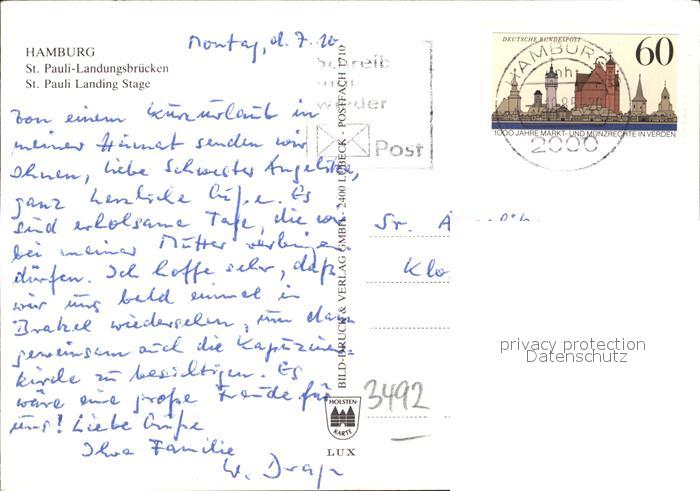 HAMBURG
St. Pauli-Landungsbrücken
St. Pauli Landing Stage
Montag, d. 7. 10
Von einem Kurzurlaub in
meiner Heimat senden wir
Ihnen, liebe Schwester
ganz herzliche Grüße. Es
sind erholsame Tage, die wir
bei meiner Mutter verbringen
dürfen. Ich hoffe sehr, daß
wir uns bald einmal in
Brakel wiedersehen, um dann
gemeinsam auch die Kapuziner-
kirche zu besichtigen. Es
wäre eine große Freude für
uns! Liebe Grüße
Ihre Familie
W.
BILD-DRUCK & VERLAG GMBH - 2400 LÜBECK - POSTFACH 1710
HOLSTEN-
KARTE
LUX
Schreib
mal
wieder
Post
DEUTSCHE BUNDESPOST
60
1000 JAHRE MARKT- UND MÜNZRECHTE IN VERDEN
HAMBURG
2000
Sr.
Klo
3492
privacy protection
Datenschutz